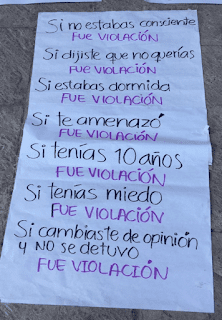 Si no estabas consciente
FUE VIOLACIÓN
Si dijiste que no querías
FUE VIOLACIÓN
Si estabas dormida
FUE VIOLACIÓN
Si te amenazó
FUE VIOLACIÓN
Si tenías 10 años
FUE VIOLACIÓN
Si tenías miedo
FUE VIOLACIÓN
Si cambiaste de opinión
y NO se detuvo
FUE VIOLACIÓN